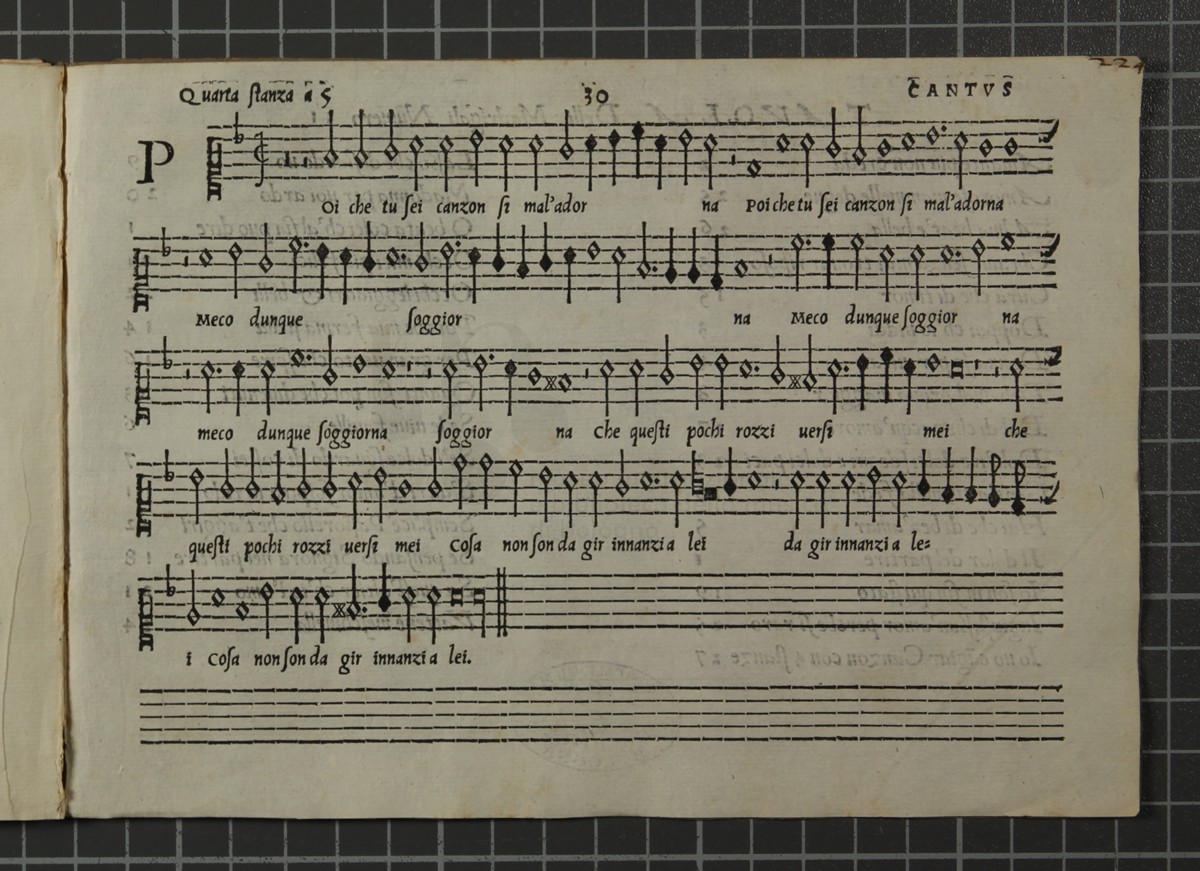 Quarta ſtanza a 5 30 CANTVS
P Oi che tu ſei canzon ſi mal'ador na Poi che tu ſei canzon ſi mal'adorna
Meco dunque ſoggior na Meco dunque ſoggior na
meco dunque ſoggiorna ſoggior na Che queſti pochi rozzi uerſi mei che
queſti pochi rozzi uerſi mei Coſa non ſon da gir innanzi a lei da gir innanzi a le=
i Coſa non ſon da gir innanzi a lei.